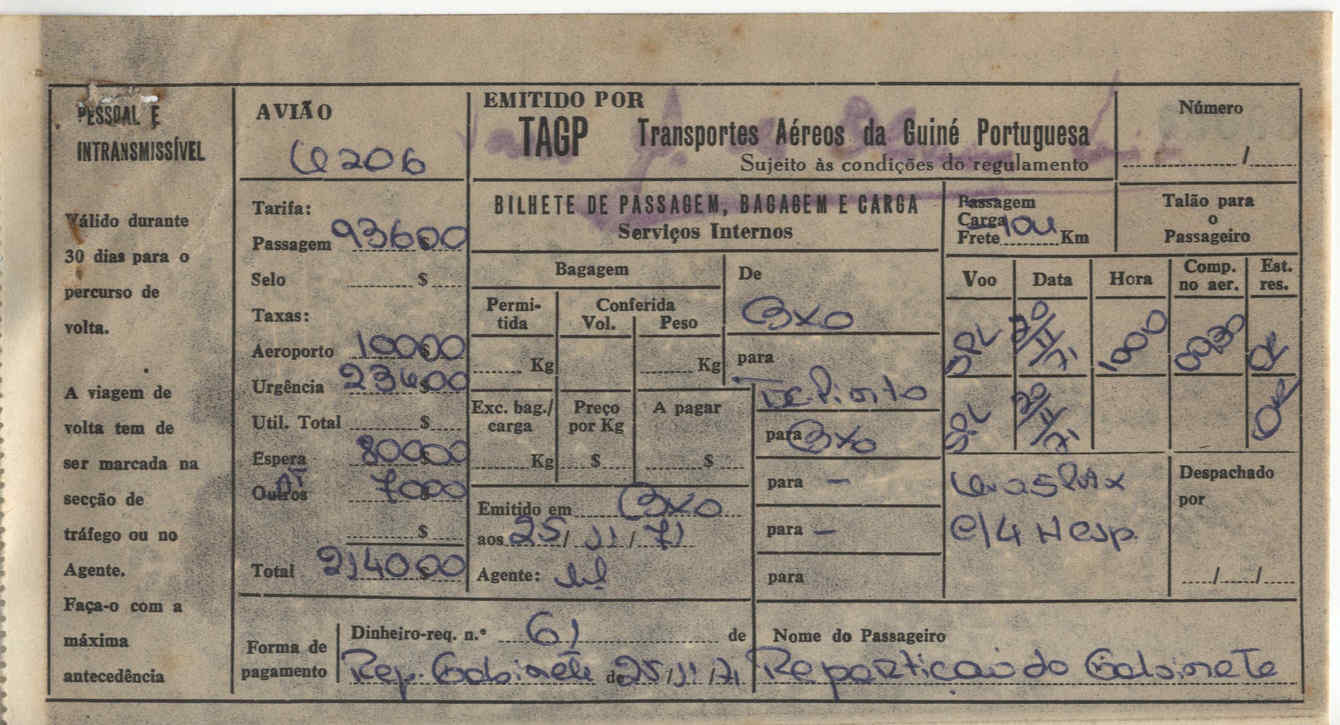 PESSOAL E
INTRANSMISSÍVEL
Válido durante
30 dias para o
percurso de
volta.
A viagem de
volta tem de
ser marcada na
secção de
tráfego ou no
Agente.
Faça-o com a
máxima
antecedência
AVIÃO
C206
Tarifa:
Passagem 936$00
Selo $
Taxas:
Aeroporto 100$00
Urgência 234$00
Util. Total $
Espera 800$00
Outros 70$00
$
Total 2140$00
EMITIDO POR
TAGP Transportes Aéreos da Guiné Portuguesa
Sujeito às condições do regulamento
Número
/
BILHETE DE PASSAGEM, BAGAGEM E CARGA
Serviços Internos
Passagem
Carga
Frete Km
Talão para
o
Passageiro
Bagagem
Permi-
tida
Conferida
Vol. Peso
Kg Kg
Exc. bag./
carga
Preço
por Kg
A pagar
Kg $ $
Emitido em BXO
aos 25/11/71
Agente:
De
BXO
para
Te. Pinto
para BXO
para -
para -
para
Voo Data Hora Comp.
no aer. Est.
res.
SPL 30/11/71 1000 0930 OK
SPL 30/11/71 OK
c/4 H esp.
Despachado
por
/ /
Forma de
pagamento
Dinheiro-req. n.º 61 de
Rep. Gabinete de 25/11/71
Nome do Passageiro
Repartição do Gabinete